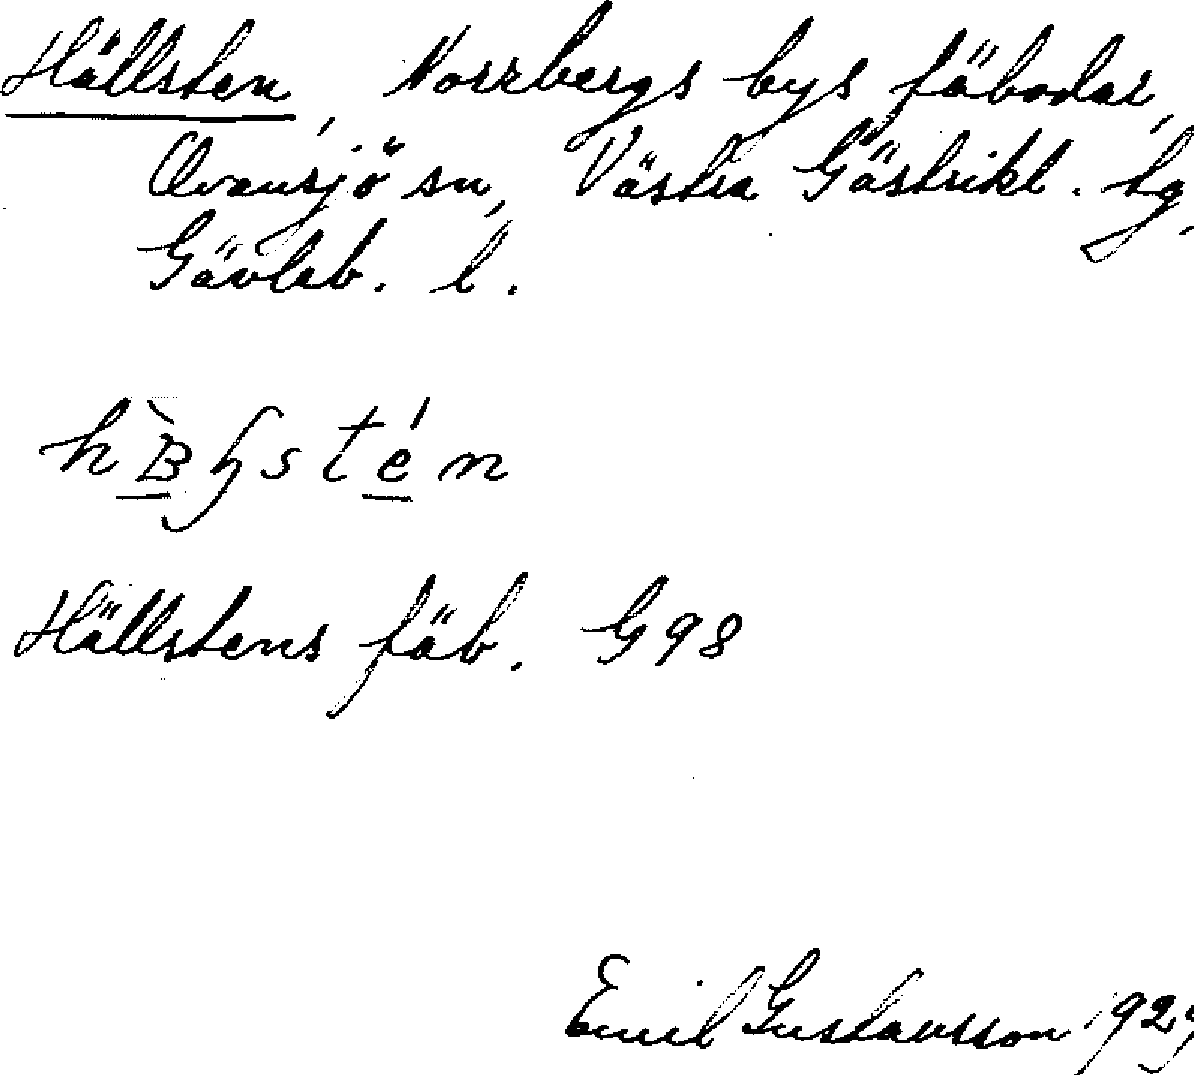 Hällsten, Norrbergs bys fäbodar,
Ovansjö sn, Västra Gästrikl. tg,
Gävleb. l.
Hällstens fäb. G 98
Emil Gustavsson